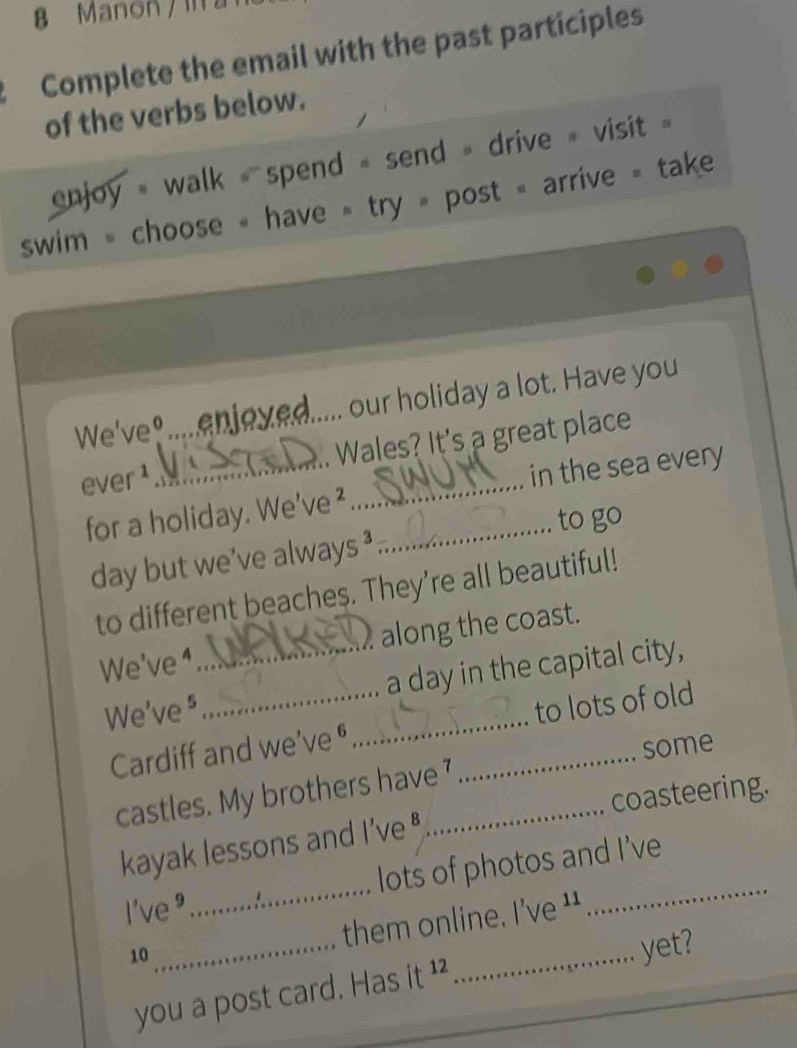 8 Manon / in a
Complete the email with the past participles
of the verbs below.
enjoy • walk • spend • send • drive • visit •
swim • choose • have • try • post • arrive • take
We've ⁰ .... enjoyed ..... our holiday a lot. Have you
ever ¹ VISITED Wales? It's a great place
for a holiday. We've ² SWUM in the sea every
day but we've always ³ .......................... to go
to different beaches. They're all beautiful!
We've ⁴ WALKED along the coast.
We've ⁵ .......................... a day in the capital city,
Cardiff and we've ⁶ .......................... to lots of old
castles. My brothers have ⁷ .......................... some
kayak lessons and I've ⁸ .......................... coasteering.
I've ⁹ .......................... lots of photos and I've
¹⁰ .......................... them online. I've ¹¹ ..........................
you a post card. Has it ¹² .......................... yet?